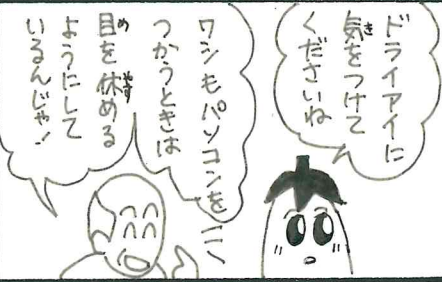 ドライアイに
気をつけて
くださいね
ワシもパソコンを
つかうときは
目を休める
ようにして
いるんじゃ!